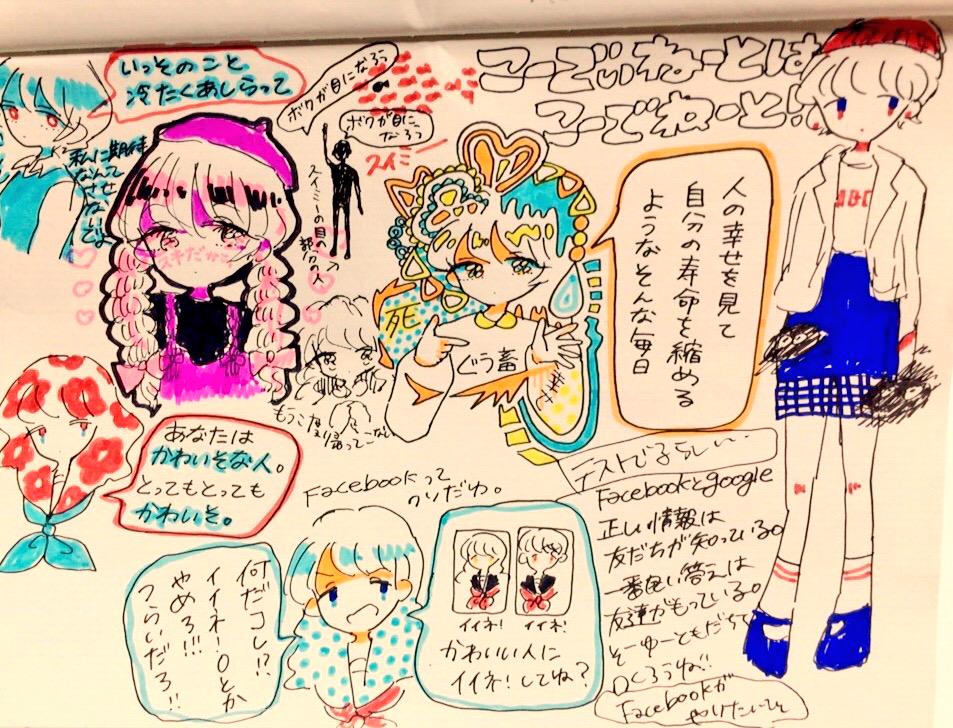 いっそのこと
冷たくあしらって
私に期待
なんて
させ
ないでよ
ボクが目になろう
ボクが目に
なろう
スイミー
スイミーの目の
部分の人
スキだから
こーでぃねーとは
こーでねーと!
ABC
人の幸せを見て
自分の寿命を縮める
ようなそんな毎日
死
どう畜
あなたは
かわいそな人。
とってもとっても
かわいそ。
Facebookって
クソだわ。
何だコレ!?
イイネ!0とか
やめろ!!!
つらいだろ!!
イイネ! イイネ!
かわいい人に
イイネ!してね?
テストでるらしい..
Facebookとgoogle
正しい情報は
友だちが知っている。
一番良い答えは
友達がもっている。
そーゆーともだち
つくろうね!!
Facebookが